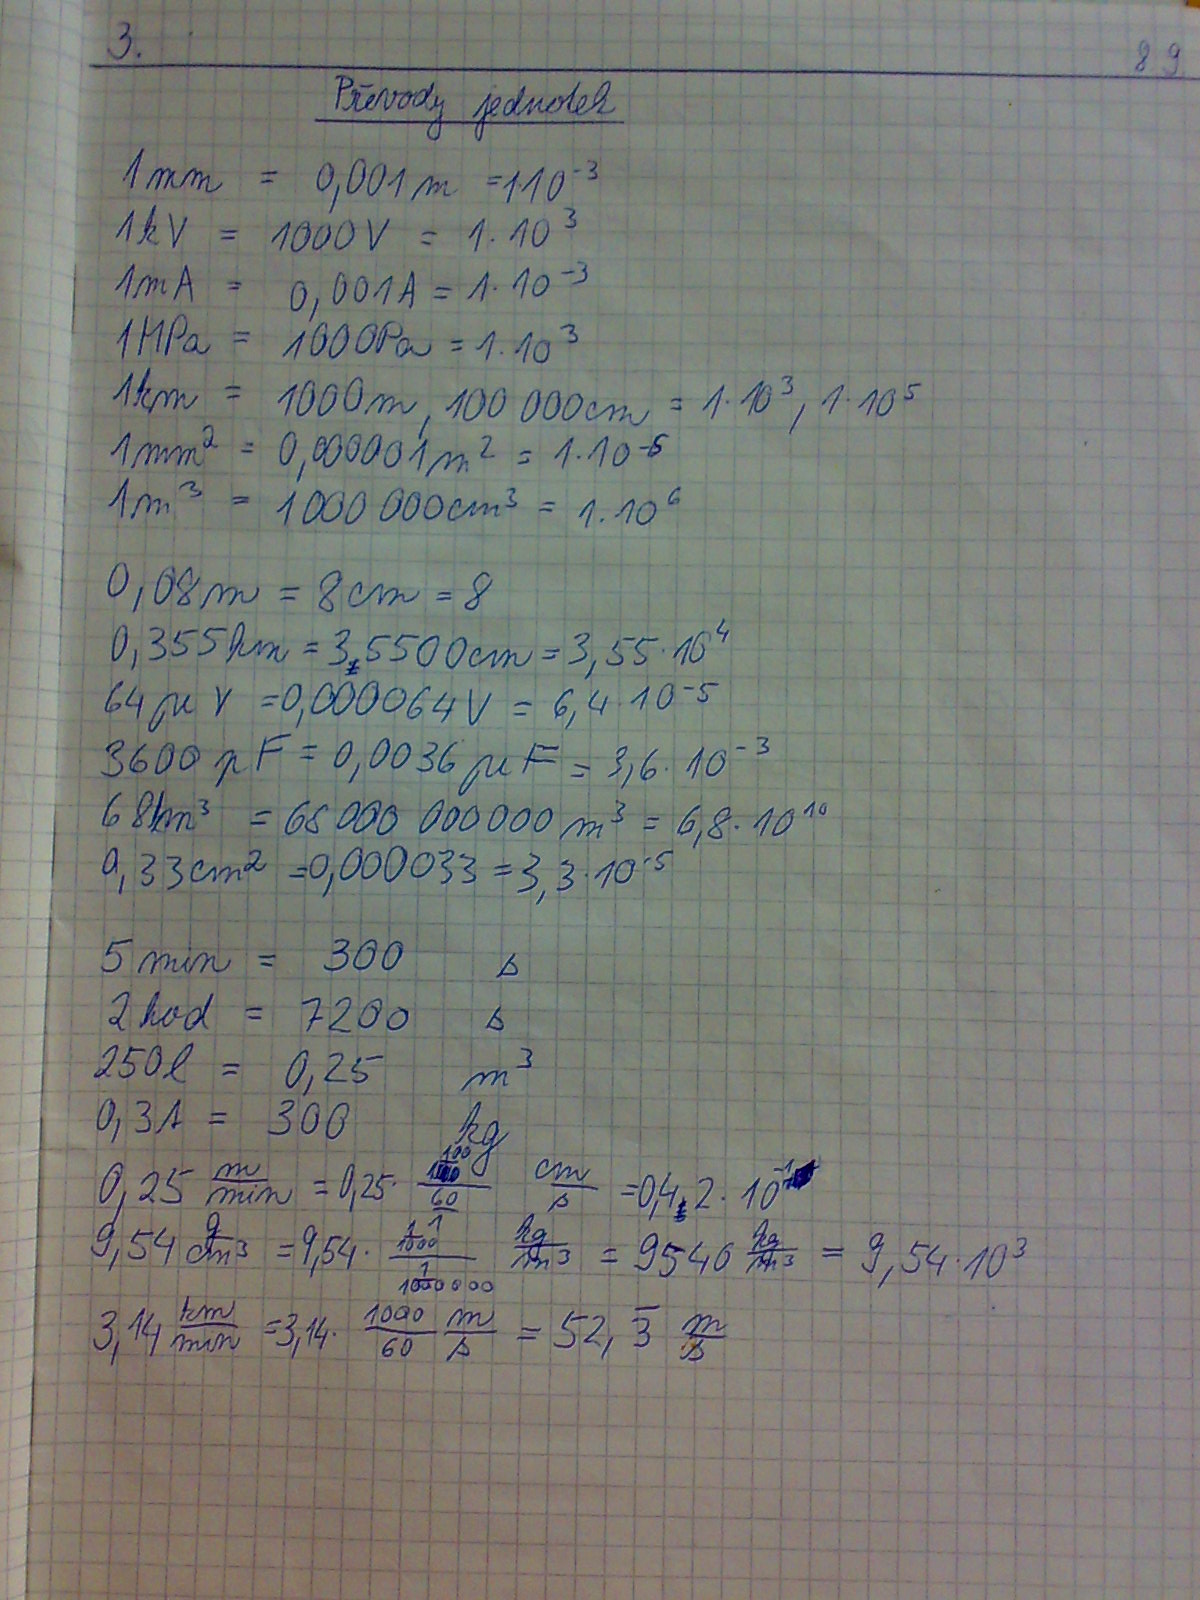 3.
8 9
Převody jednotek
1mm = 0,001m = 1·10⁻³
1kV = 1000V = 1·10³
1mA = 0,001A = 1·10⁻³
1MPa = 1000Pa = 1·10³
1km = 1000m, 100 000cm = 1·10³, 1·10⁵
1mm² = 0,000001m² = 1·10⁻⁶
1m³ = 1000 000cm³ = 1·10⁶
0,08m = 8cm = 8
0,355km = 35500cm = 3,55·10⁴
64μV = 0,000064V = 6,4·10⁻⁵
3600pF = 0,0036μF = 3,6·10⁻³
68km³ = 68000 000000 m³ = 6,8·10¹⁰
0,33cm² = 0,000033 = 3,3·10⁻⁵
5 min = 300 s
2 hod = 7200 s
250l = 0,25 m³
0,3t = 300 kg
0,25 m/min = 0,25· 100/60 cm/s = 0,42·10⁻¹
9,54 g/cm³ = 9,54· (1/1000)/(1/1000000) kg/m³ = 9540 kg/m³ = 9,54·10³
3,14 km/min = 3,14· 1000/60 m/s = 52,3̅ m/s